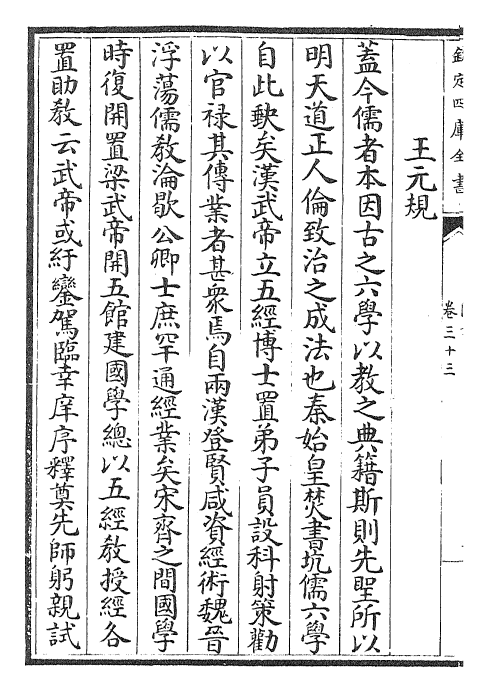 欽定四庫全書
卷三十三
王元規
蓋今儒者本因古之六學以教之典籍斯則先聖所以
明天道正人倫致治之成法也秦始皇焚書坑儒六學
自此缺矣漢武帝立五經博士置弟子員設科射策勸
以官禄其傳業者甚衆焉自兩漢登賢咸資經術魏晉
浮蕩儒教淪歇公卿士庶罕通經業矣宋齊之間國學
時復開置梁武帝開五館建國學總以五經教授經各
置助教云武帝或紆鑾駕臨幸庠序釋奠先師躬親試